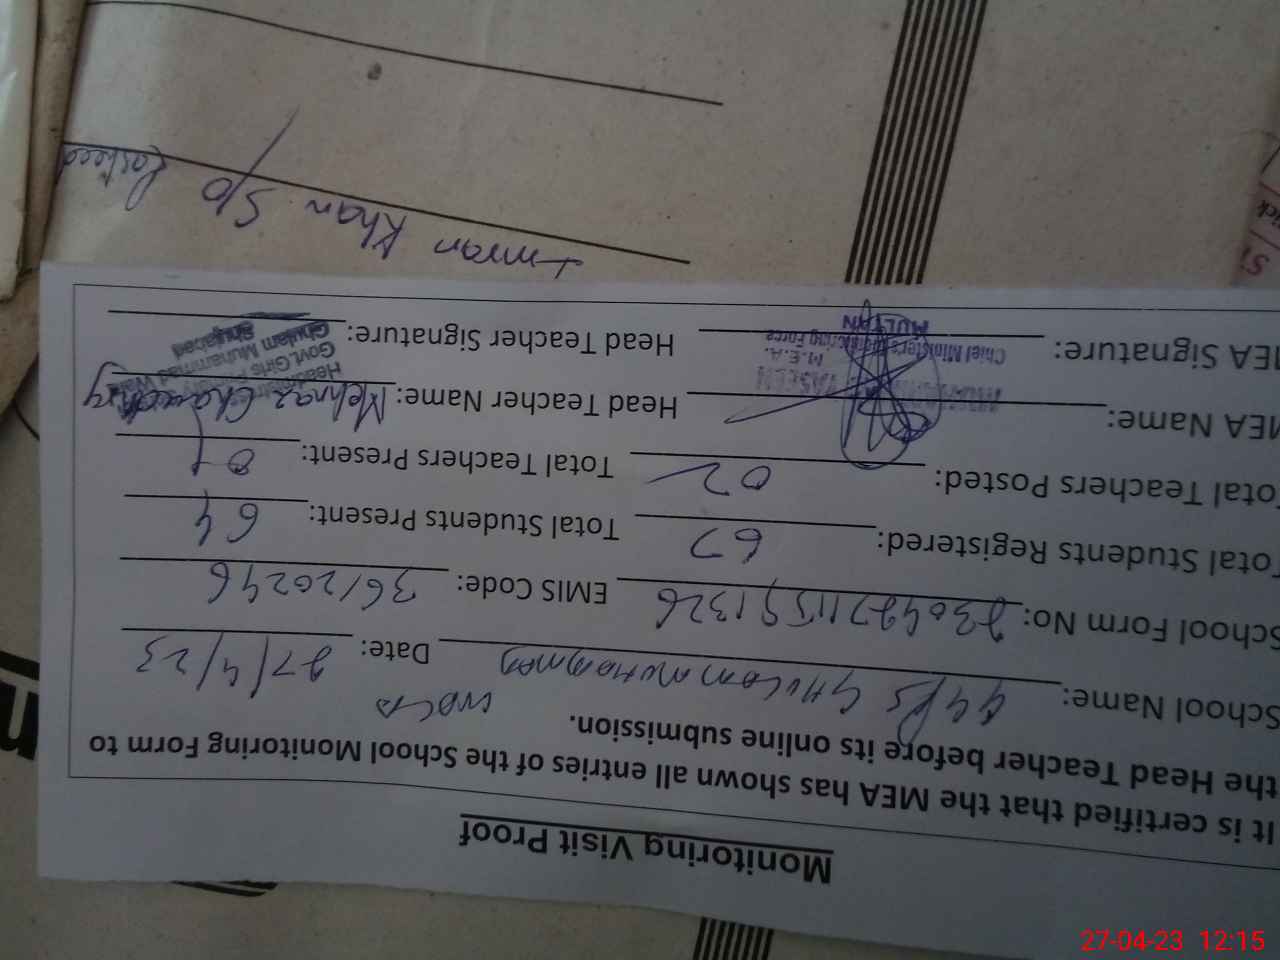 Monitoring Visit Proof
It is certified that the MEA has shown all entries of the School Monitoring Form to
the Head Teacher before its online submission.
School Name: GGPS Ghulam Muhammad Date: 27/4/23
School Form No: EMIS Code: 36120246
Total Students Registered: 67 Total Students Present: 64
Total Teachers Posted: 02 Total Teachers Present: 01
MEA Name: Head Teacher Name: Mehnaz Chaudhry
MEA Signature: Head Teacher Signature:
YASEEN
M.E.A.
Chief Minister's Monitoring Force
MULTAN
Govt. Girls Primary
Ghulam Muhammad Wala
Shujabad
Imran Khan S/o Rasheed
27-04-23 12:15